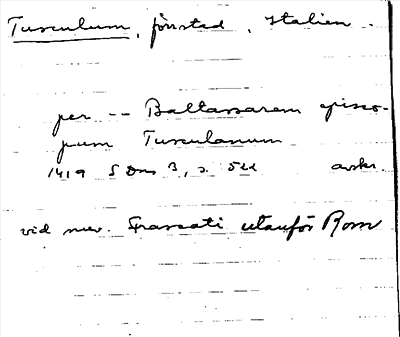 Tusculum, förstad, Italien.
per -- Baltassarem episco-
pum Tusculanum
1419 S Dns 3, s. 522 avskr.
vid nuv. Frascati utanför Rom